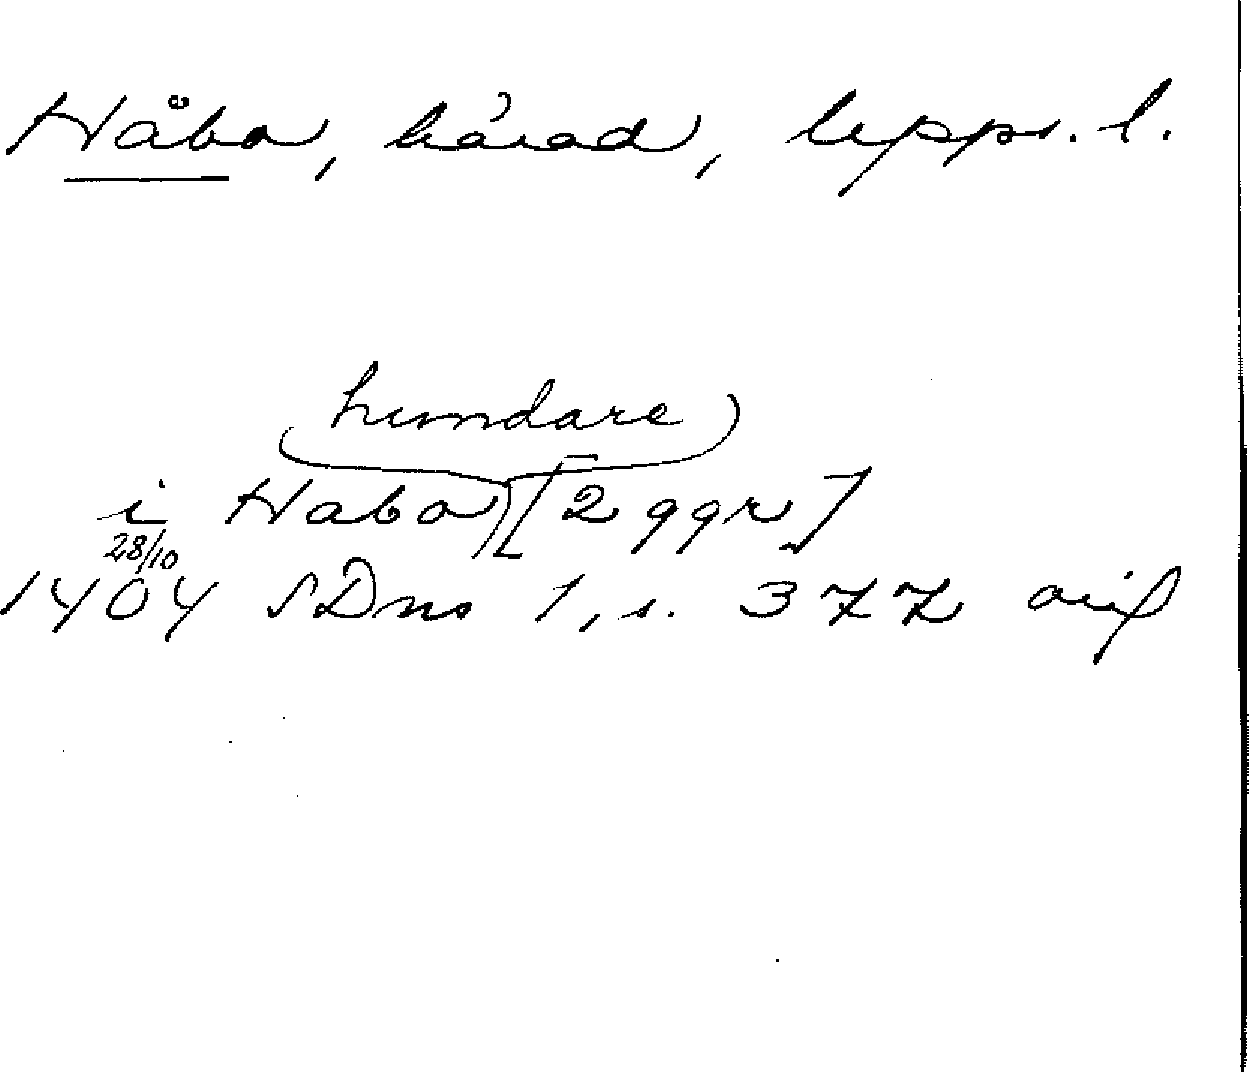 Håbo, härad, Upps. l.
hundare
i Habo [2 ggr]
28/10
1404 SDns 1, s. 377 avs